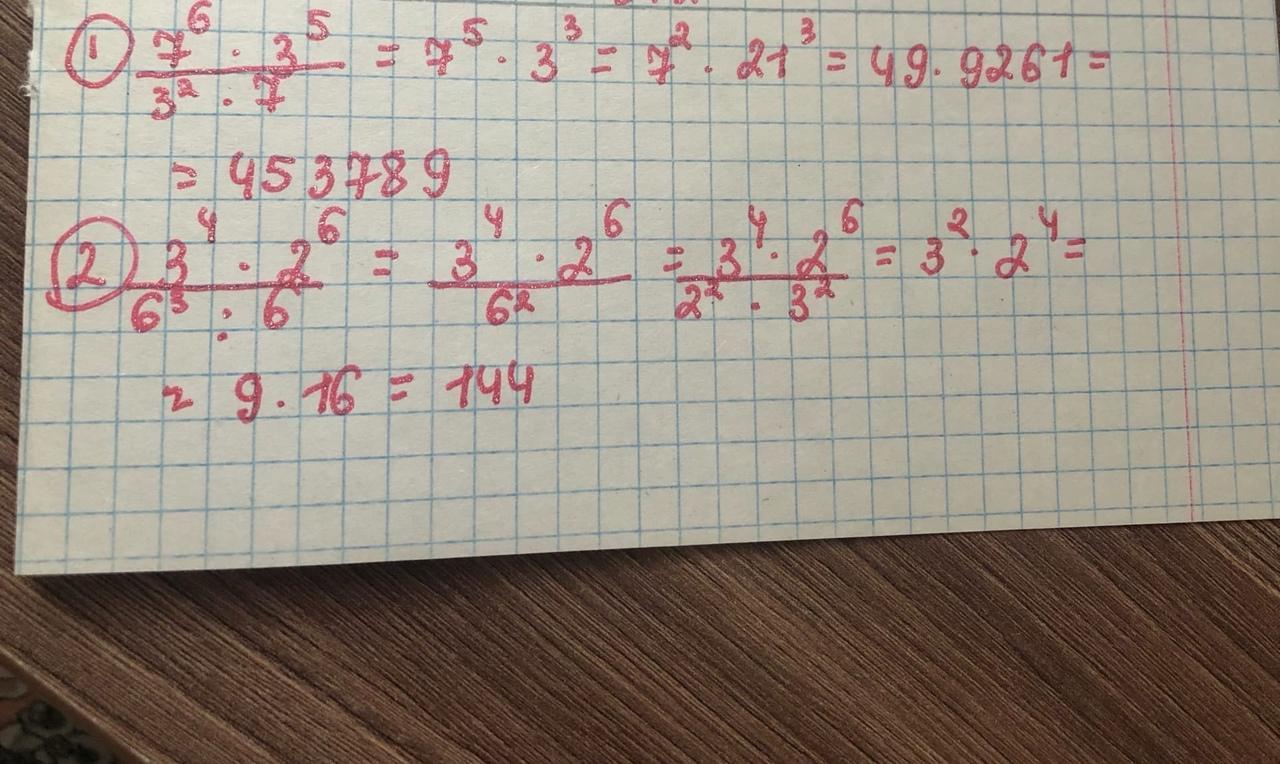 ① 7⁶ · 3⁵ / 3² · 7 = 7⁵ · 3³ = 7² · 21³ = 49 · 9261 =
= 453789
② 3⁴ · 2⁶ / 6³ : 6 = 3⁴ · 2⁶ / 6² = 3⁴ · 2⁶ / 2² · 3² = 3² · 2⁴ =
= 9 · 16 = 144